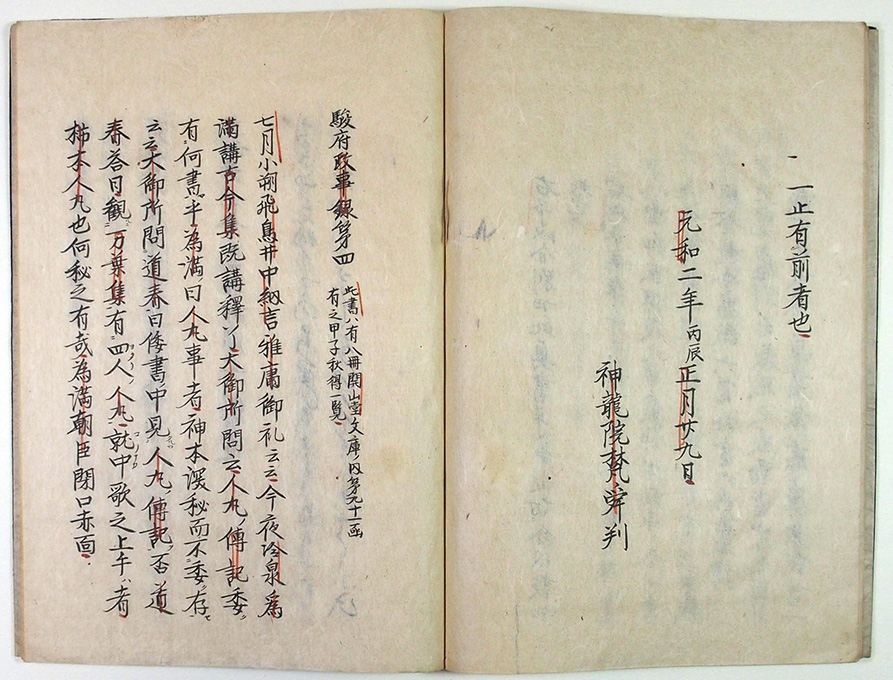 一止有前者也
元和二年丙辰正月廿九日
神龍院梵舜判
駿府政事録第四
此書ハ有八冊開山堂文庫内第九十一凾
有之甲子秋得一覧
七月小朔飛鳥井中納言雅庸御礼云云今夜冷泉為
満講古今集既講釋了大御所問云人丸ノ傳記委
有何書乎為満曰人丸事者神本深秘而不委存
云云大御所問道春曰倭書中見人丸傳記否道
春答曰観万葉集有四人人丸就中歌之上手ハ者
柿本人丸也何秘之有哉為満朝臣閉口赤面